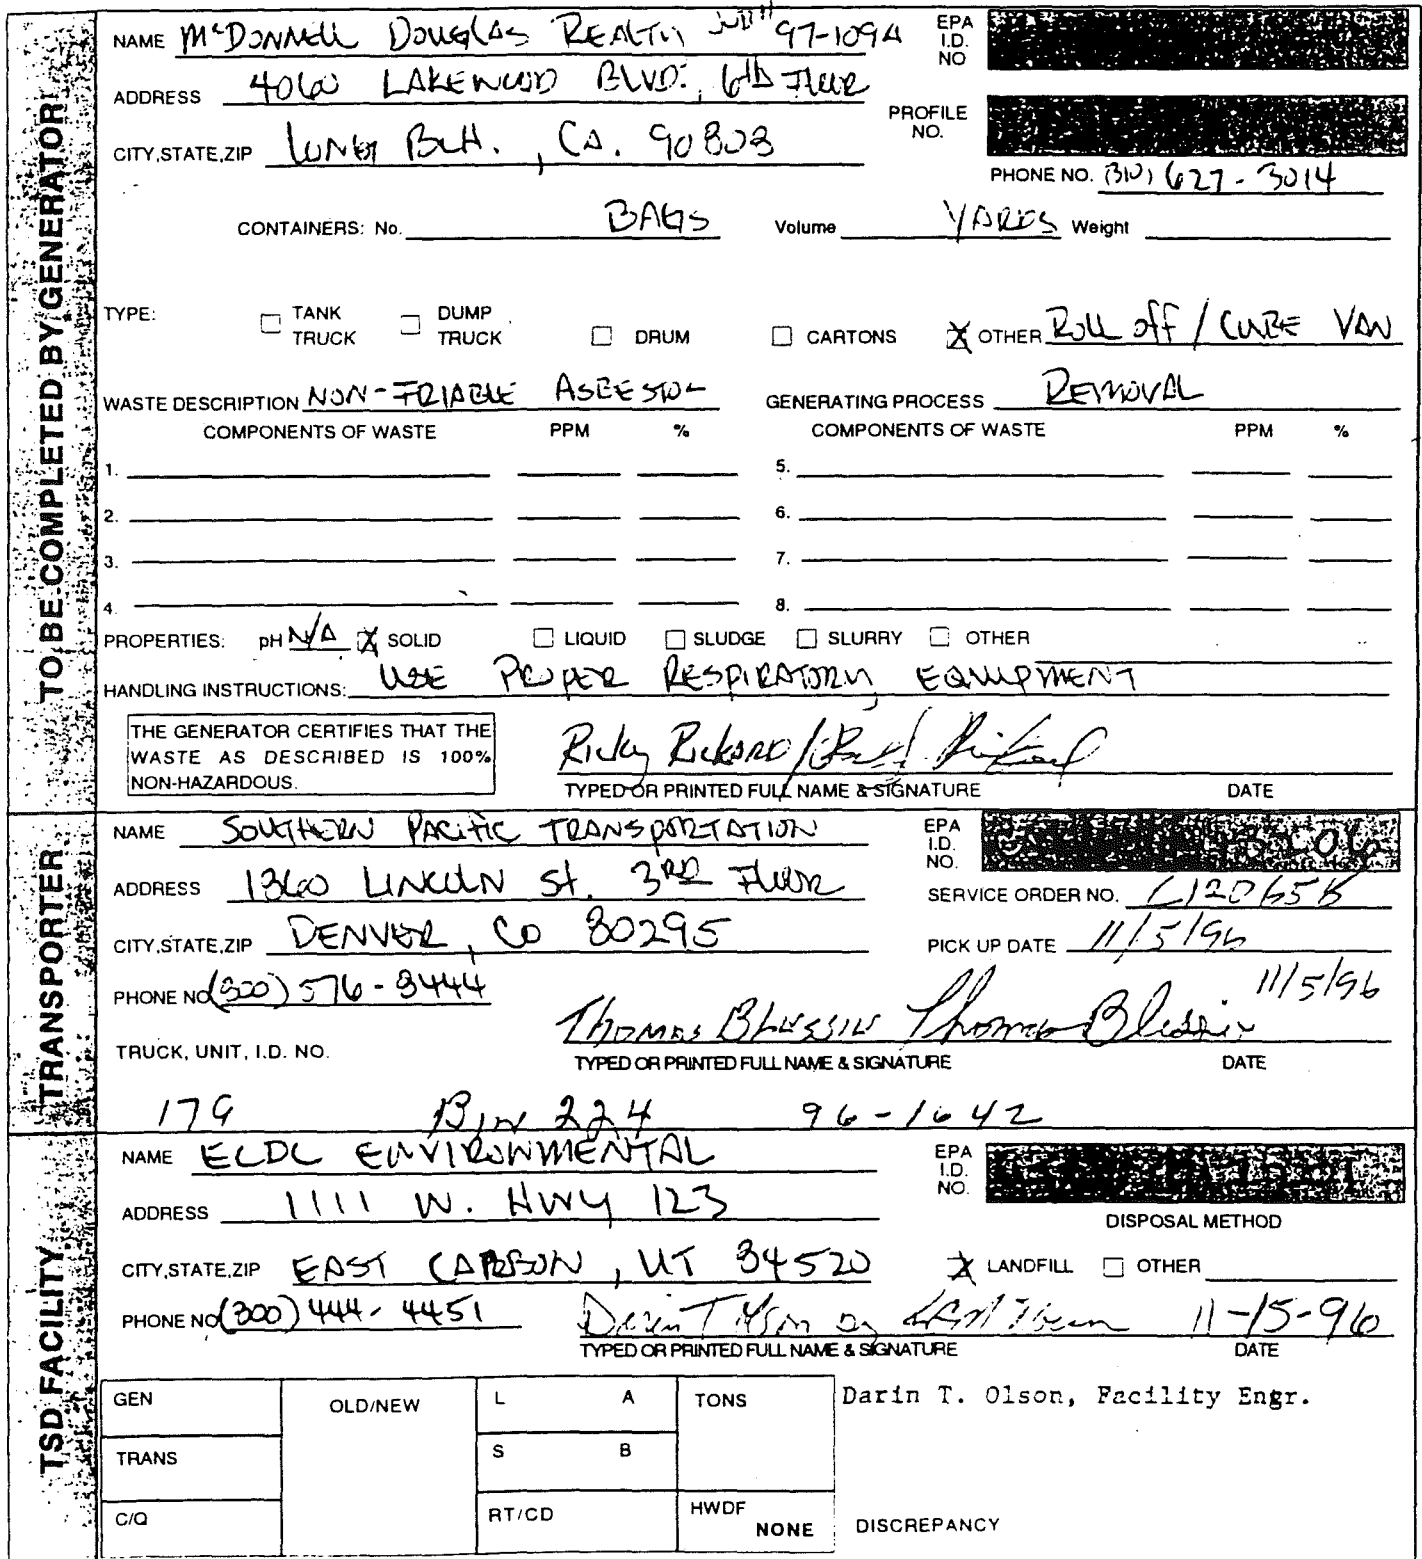 TO BE COMPLETED BY GENERATOR
NAME McDONNELL DOUGLAS REALTY 97-1094
EPA I.D. NO
ADDRESS 4060 LAKEWOOD BLVD., 6th FLOOR
PROFILE NO.
CITY,STATE,ZIP LONG BCH., CA. 90808
PHONE NO. (310) 627-3014
CONTAINERS: No. BAGS Volume YARDS Weight
TYPE: TANK TRUCK DUMP TRUCK DRUM CARTONS X OTHER ROLL OFF / CUBE VAN
WASTE DESCRIPTION NON-FRIABLE ASBESTOS GENERATING PROCESS REMOVAL
COMPONENTS OF WASTE PPM % COMPONENTS OF WASTE PPM %
1. 5.
2. 6.
3. 7.
4. 8.
PROPERTIES: pH N/A X SOLID LIQUID SLUDGE SLURRY OTHER
HANDLING INSTRUCTIONS: USE PROPER RESPIRATORY EQUIPMENT
THE GENERATOR CERTIFIES THAT THE
WASTE AS DESCRIBED IS 100%
NON-HAZARDOUS.
Ricky Rickard /
TYPED OR PRINTED FULL NAME & SIGNATURE DATE
TRANSPORTER
NAME SOUTHERN PACIFIC TRANSPORTATION
EPA I.D. NO.
ADDRESS 1860 LINCOLN St. 3RD FLOOR
SERVICE ORDER NO.
CITY,STATE,ZIP DENVER, CO 80295
PICK UP DATE 11/5/96
PHONE NO (800) 576-8444
11/5/96
THOMAS BLESSIN Thomas Blessin
TRUCK, UNIT, I.D. NO.
TYPED OR PRINTED FULL NAME & SIGNATURE DATE
179 Bin 224 96-1642
TSD FACILITY
NAME ECDC ENVIRONMENTAL
EPA I.D. NO.
ADDRESS 1111 W. HWY 123
DISPOSAL METHOD
CITY,STATE,ZIP EAST CARBON, UT 84520
X LANDFILL OTHER
PHONE NO (800) 444-4451
11-15-96
TYPED OR PRINTED FULL NAME & SIGNATURE DATE
GEN OLD/NEW L A TONS
Darin T. Olson, Facility Engr.
TRANS S B
C/Q RT/CD HWDF NONE
DISCREPANCY